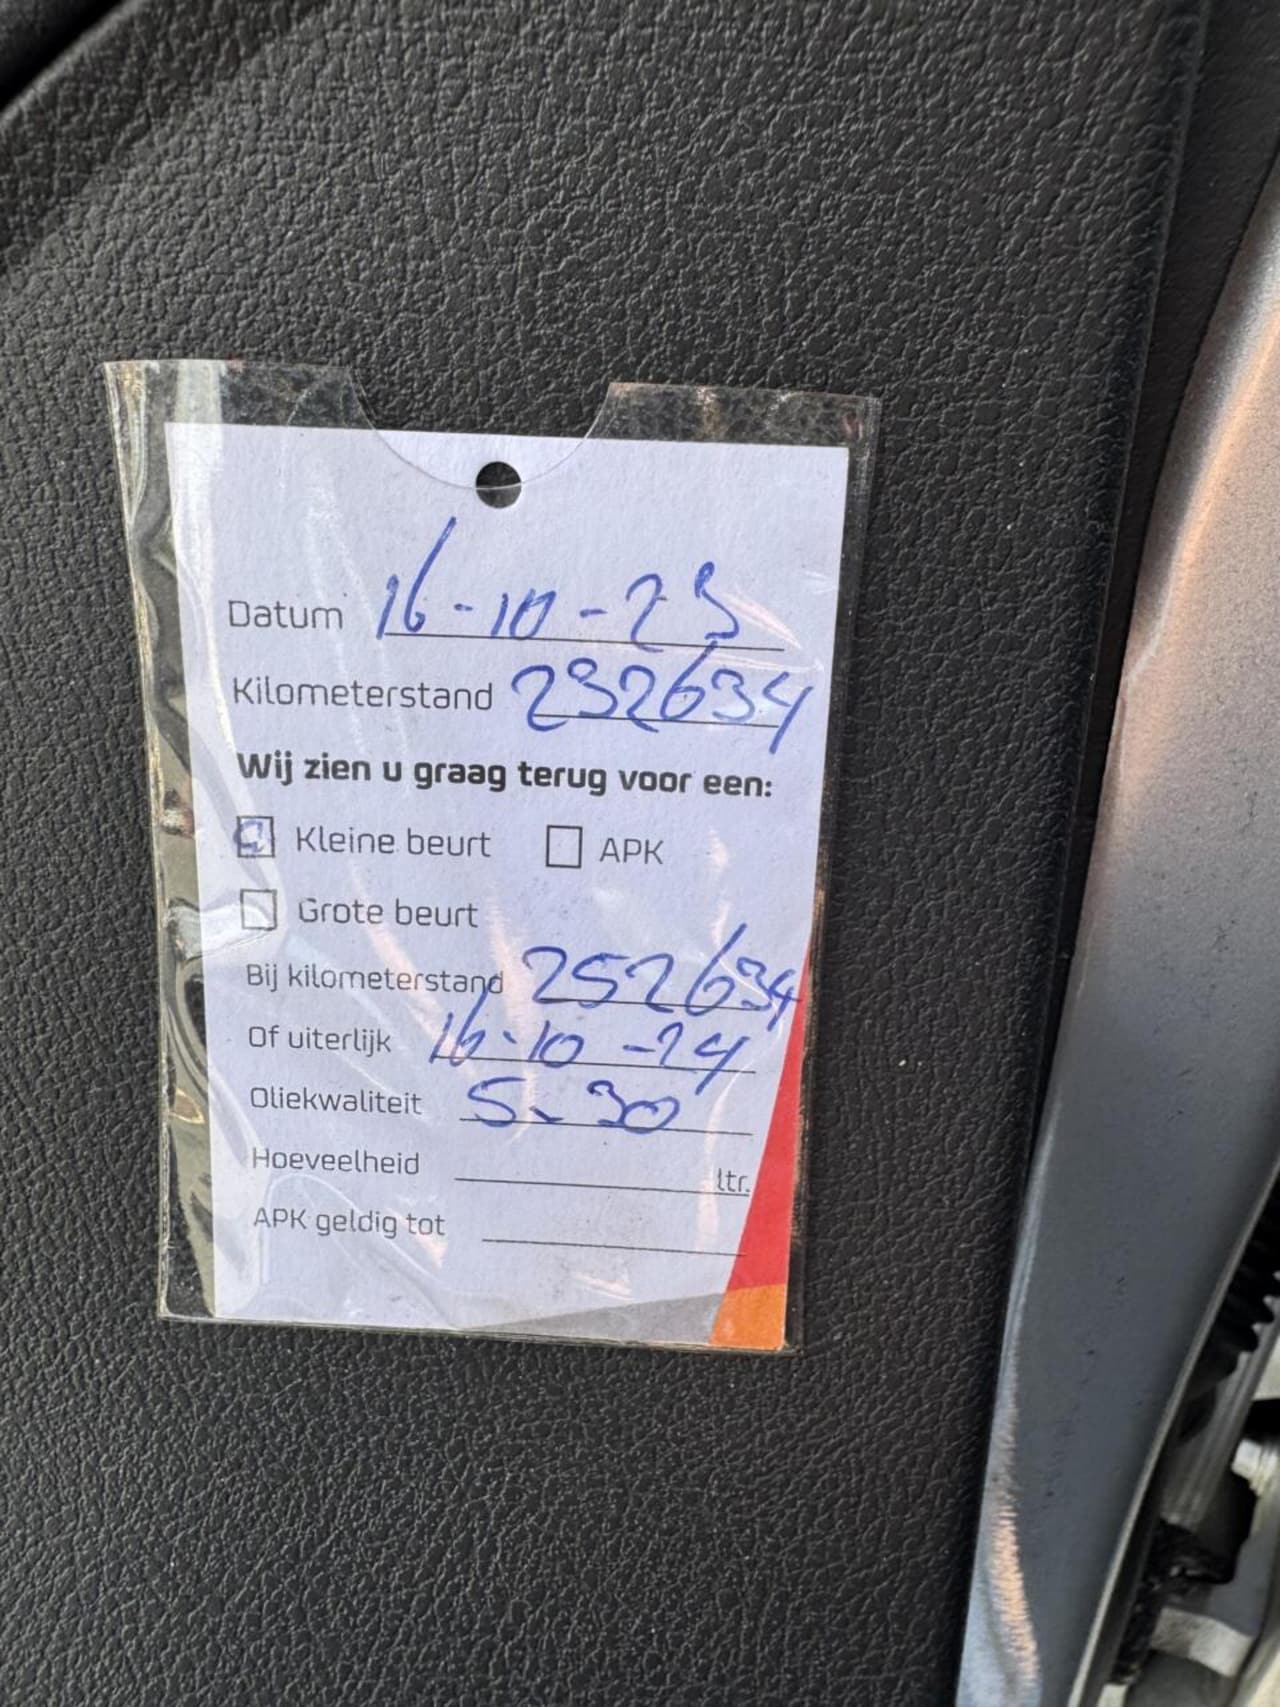 Datum 16-10-23
Kilometerstand 232634
Wij zien u graag terug voor een:
Kleine beurt APK
Grote beurt
Bij kilometerstand 252634
Of uiterlijk 16-10-24
Oliekwaliteit 5w30
Hoeveelheid ltr.
APK geldig tot